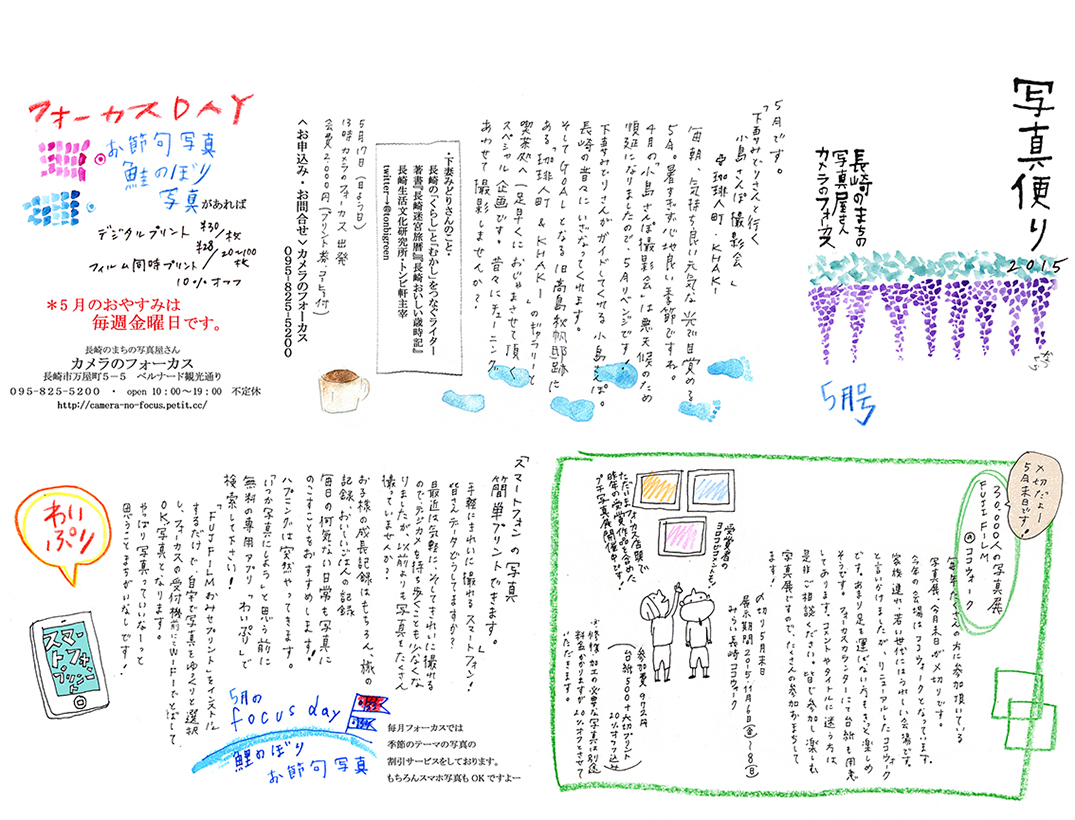 写真便り
2015
長崎のまちの
写真屋さん
カメラのフォーカス
5月号
5月です。
「下妻みどりさんと行く
小島さんぽ撮影会」
@珈琲人町・KHAKI
毎朝、気持ち良い元気な光で目覚める
5月。暑すぎず心地良い季節ですね。
4月の「小島さんぽ撮影会」は悪天候のため
順延になりましたので、5月リベンジです!
下妻みどりさんがガイドしてくれる小島さんぽ。
長崎の昔々にいざなってくれます。
そしてGOALとなる旧高島秋帆邸跡に
ある「珈琲人町&KHAKI」のギャラリーと
喫茶処へ一足早くおじゃまさせて頂く
スペシャル企画です。昔々にチューニング
あわせて撮影しませんか?
・下妻みどりさんのこと・
長崎の「くらし」と「むかし」をつなぐライター
著書『長崎迷宮旅暦』『長崎おいしい歳時記』
長崎生活文化研究所・トンビ軒主宰
twitter→@tonbigreen
5月17日(日ようび)
13時カメラのフォーカス出発
会費2,000円(プリント券・コーヒー付)
<お申込み・お問合せ>カメラのフォーカス
095-825-5200
フォーカスDAY
お節句写真
鯉のぼり
写真があれば
デジタルプリント ¥30/枚
¥28/20~100枚
フィルム同時プリント
10%オフ
*5月のおやすみは
毎週金曜日です。
長崎のまちの写真屋さん
カメラのフォーカス
長崎市万屋町5-5 ベルナード観光通り
095-825-5200 ・ open 10:00~19:00 不定休
http://camera-no-focus.petit.cc/
〆切だよー
5月末日です!
30,000人の写真展
FUJIFILM
@ココウォーク
毎年たくさんの方に参加頂いている
写真展、今月末日が〆切りです。
今年の会場はココウォークとなっています。
家族連れ、若い世代にはうれしい会場です。
と言いかけましたが、リニューアルしたココウォーク
です。あまり足を運ばない方もきっと楽しめ
そうです。フォーカスカウンターにて台紙も用意
してあります。コメントやタイトルに迷う方は
是非ご相談ください。皆で参加し楽しむ
写真展ですので、たくさんの参加おまちして
ます!
〆切り5月末日
展示期間2015.11月6日(金)~8(日)
みらい長崎ココウォーク
参加費972円
台紙500+六切プリント
20%オフ込み
※修復・加工の必要な写真は別途
料金かかりますが20%オフとさせて
いただきます。
ただいま、フォーカス店頭で
昨年の受賞作品を含めた
プチ写真展開催中です。
受賞者の
ヨロコビコメントも!
「スマートフォン」の写真
簡単プリントできます。
手軽にきれいに撮れるスマートフォン!
皆さんデータどうしてますか?
最近は気軽に、そしてきれいに撮れる
ので、デジカメを持ち歩くことも少なくな
りましたが、以前よりも写真をたくさん
撮っていませんか?
お子様の成長記録はもちろん、旅の
記録、おいしいごはんの記録
毎日の何気ない日常も写真に
のこすことをおすすめします!
ハプニングは突然やってきます。
「いつか写真にしよう」と思う前に
無料の専用アプリ「わいぷり」で
検索して下さい!
「FUJIFILMおみせプリント」をインストール
するだけで、自宅で写真をゆっくりと選択
し、フォーカスの受付機前にWiFiでとばして
OK!写真となります。
やっぱり写真っていいなーっと
思うことまちがいなしです!
わい
ぷり
スマー
トフォン
プリント
5月の
focus day
鯉のぼり
お節句写真
毎月フォーカスでは
季節のテーマの写真の
割引サービスをしております。
もちろんスマホ写真もOKですよー